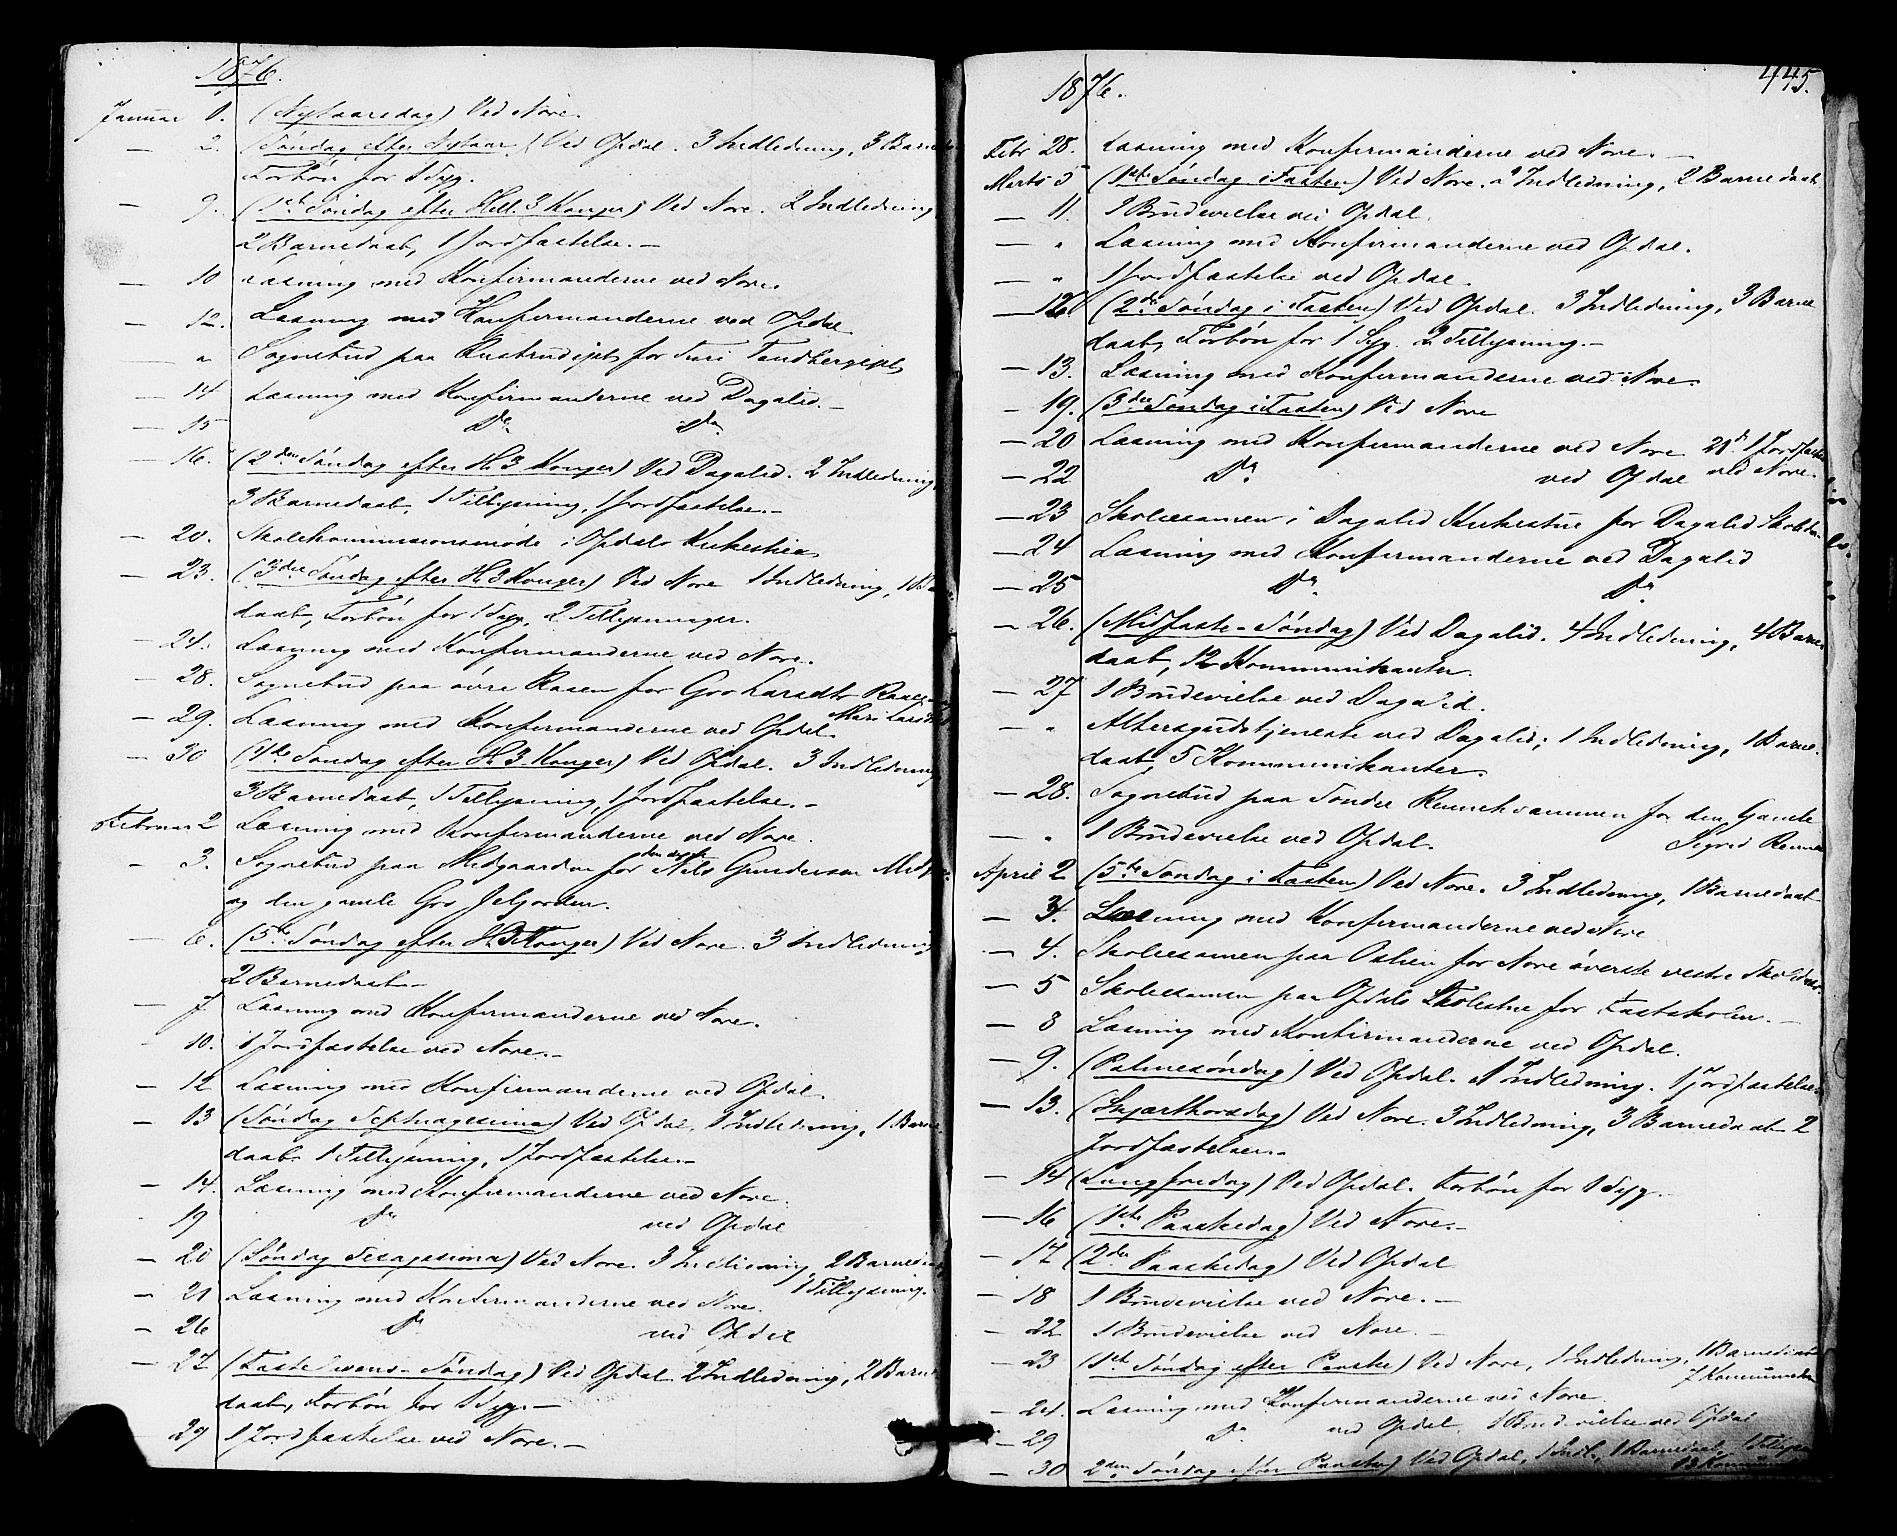 1876.
Januar 1. (Nytaarsdag) Ved Nore.
— 2. (Søndag efter Nytaar) Ved Opdal. 3 Indledning, 3 Barne
Forbøn for 1 Syg.
— 9. (1ste Søndag efter Hell. 3 Konger) Ved Nore. 2 Indledning
2 Barnedaab, 1 Jordfæstelse. —
— 10 Læsning med Konfirmanderne ved Nore.
— 12. Læsning med Konfirmanderne ved Opdal
— " Sognebud paa
— 14 Læsning med Konfirmanderne ved Dagalid. —
— 15 Do Do
— 16. (2den Søndag efter H. 3 Konger) Ved Dagalid. 2 Indledning,
3 Barnedaab, 1 Tillysning, 1 Jordfæstelse. —
— 20. Skolekommissionsmøde i Opdals Kirkestue
— 23. (3die Søndag efter H. 3 Konger) Ved Nore 1 Indledning, 1 Bar
daab, Forbøn for 1 Syg, 2 Tillysninger.
— 24. Læsning med Konfirmanderne ved Nore.
— 28. Sognebud paa øvre Raaen for Gro Larsdtr
— 29. Læsning med Konfirmanderne ved Opdal. Mari Larsd
— 30 (4de Søndag efter H. 3. Konger) Ved Opdal. 3 Indledning
3 Barnedaab, 1 Tillysning, 1 Jordfæstelse. —
Februar 2 Læsning med Konfirmanderne ved Nore.
— 3. Sognebud paa Midgaarden for den syge Nils Gundersen Midg
og den gamle Gro
— 6. (5te Søndag efter H. 3 Konger) Ved Nore. 3 Indledning
2 Barnedaab —
— 7 Læsning med Konfirmanderne ved Nore.
— 10. 1 Jordfæstelse ved Nore. —
— 12 Læsning med Konfirmanderne ved Opdal.
— 13 (Søndag Septuagesima) Ved Opdal, 1 Indledning, 1 Barne
daab 1 Tillysning, 1 Jordfæstelse —
— 14. Læsning med Konfirmanderne ved Nore.
19 Do ved Opdal
— 20 (Søndag Sexagesima) Ved Nore. 3 Indledning, 2 Barnedaab
1 Tillysning.
— 21 Læsning med Konfirmanderne ved Nore.
— 26 Do ved Opdal
— 27 (Fastelavens-Søndag) Ved Opdal 2 Indledning, 2 Barne
daab, Forbøn for 1 Syg. —
— 29 1 Jordfæstelse ved Nore. —
445.
1876.
Febr 28. Læsning med Konfirmanderne ved Nore. —
Marts 5 (1ste Søndag i Fasten) Ved Nore. 2 Indledning, 2 Barnedaab
— 11. 1 Brudevielse ved Opdal.
— " Læsning med Konfirmanderne ved Opdal.
— " 1 Jordfæstelse ved Opdal.
— 12 (2den Søndag i Fasten) Ved Opdal. 3 Indledning, 3 Barne
daab, Forbøn for 1 Syg. 2 Tillysning. —
— 13. Læsning med Konfirmanderne ved Nore
— 19. (3die Søndag i Fasten) Ved Nore
— 20 Læsning med Konfirmanderne ved Nore 21de 1 Jordfæste
ved Nore.
— 22 Do ved Opdal
— 23 Skoleexamen i Dagalid Kirkestue for Dagalid
— 24 Læsning med Konfirmanderne ved Dagalid
— 25 Do Do
— 26. (Midfaste-Søndag) Ved Dagalid. 4 Indledning, 4 Barne
daab, 12 Kommunikanter.
— 27 1 Brudevielse ved Dagalid.
— " Altersgudstjeneste ved Dagalid; 1 Indledning, 1 Barne
daab, 5 Kommunikanter.
— 28. Sognebud paa Søndre for den Gamle
Sigrid
— " 1 Brudevielse ved Opdal.
April 2 (5te Søndag i Fasten) Ved Nore. 3 Indledning, 1 Barnedaab
— 3. Læsning med Konfirmanderne ved Nore
— 4. Skoleexamen paa for Nore øverste vestre
— 5 Skoleexamen paa Opdals Skolestue for Fastskolen. —
— 8 Læsning med Konfirmanderne ved Opdal.
— 9. (Palmesøndag) Ved Opdal. 1 Indledning. 1 Jordfæstelse
— 13. (Skjærthorsdag) Ved Nore. 3 Indledning, 3 Barnedaab 2
Jordfæstelser. —
— 14 (Langfredag) Ved Opdal. Forbøn for 1 Syg. —
— 16 (1ste Paaskedag) Ved Nore. —
— 17 (2den Paaskedag) Ved Opdal
— 18 1 Brudevielse ved Nore. —
— 22 1 Brudevielse ved Nore. —
— 23 (1ste Søndag efter Paaske) Ved Nore, 1 Indledning, 1 Barnedaab
7 Kommunikan
— 24. Læsning med Konfirmanderne ved Nore
— 29 Do ved Opdal. 1 Brudevielse ved Opdal
— 30 2den Søndag efter Paaske) Ved Opdal, 1 Indl., 1 Barnedaab, 1 Tillysn
13 Kommu